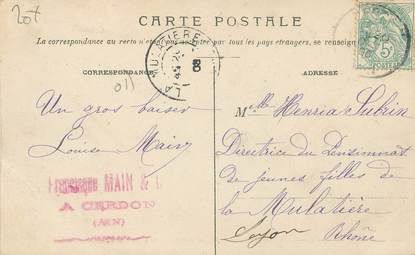 20+
CARTE POSTALE
La correspondance au recto n'est pas acceptée par tous les pays étrangers, se renseigner
CORRESPONDANCE
ADRESSE
LA MULATIERE
08
Un gros baiser
Louise Main
MAIN &
A CERDON
(AIN)
Melle Henria Subrin
Directrice du Pensionnat
de jeunes filles de
la Mulatière
Lyon
Rhône
5c